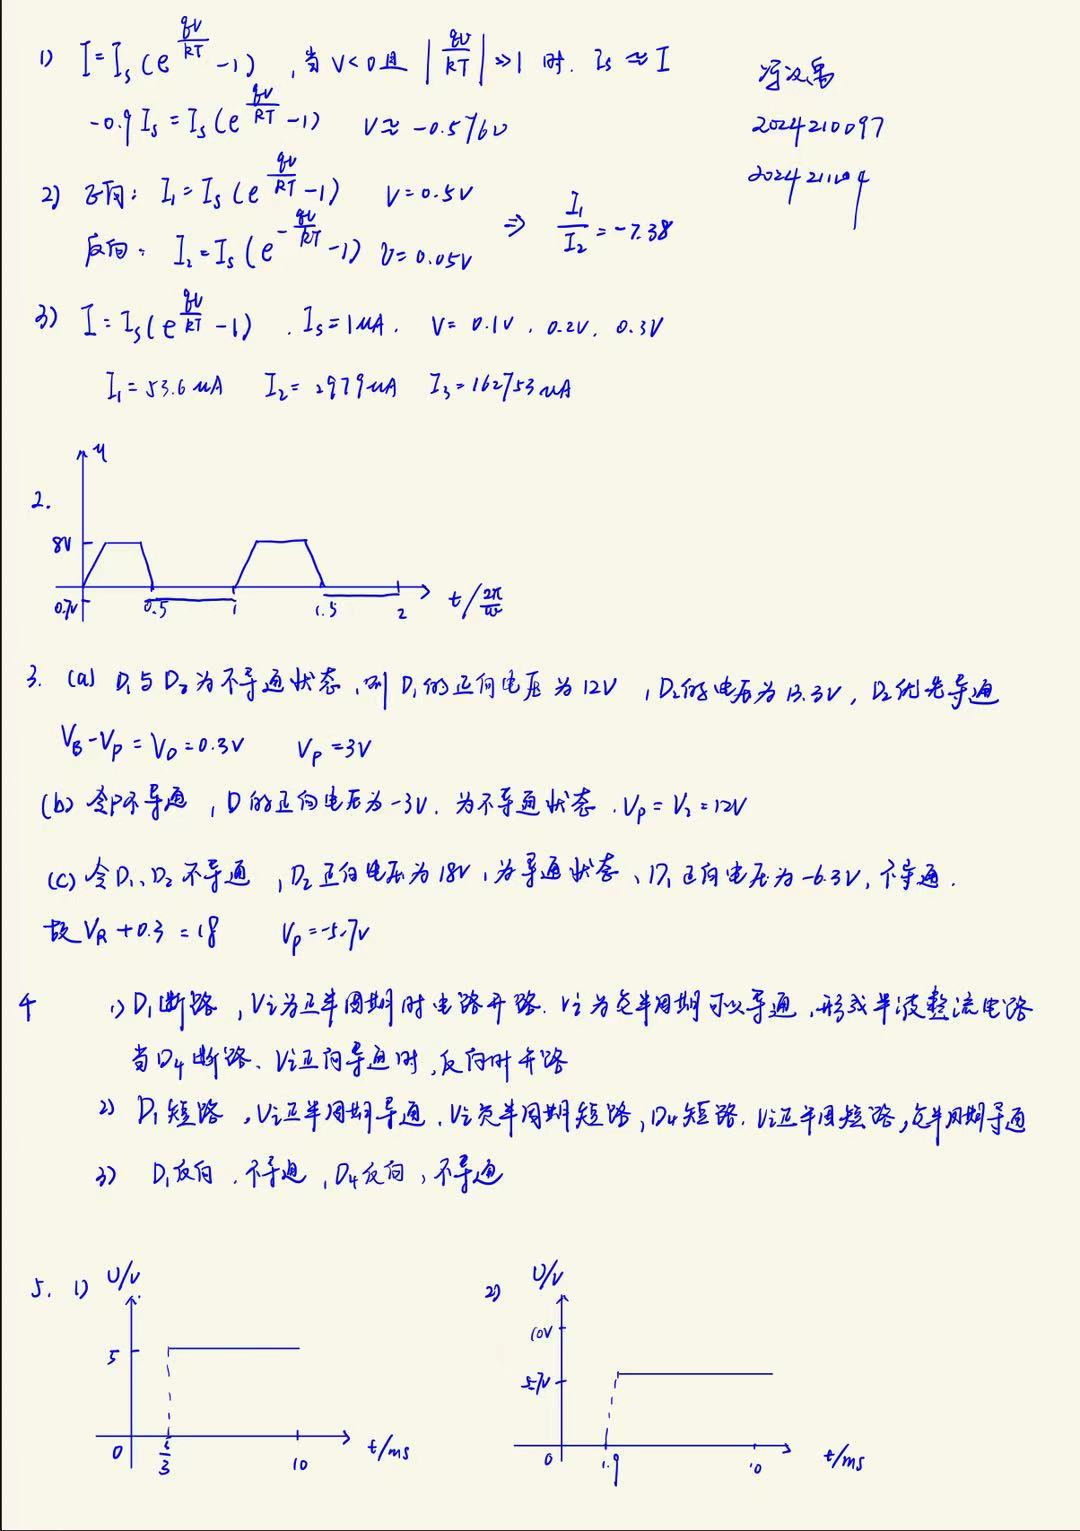 1) I=Is(e^(qV/kT) -1), 当V<0且 |qV/kT|>>1 时. Is≈I
-0.9Is = Is(e^(qV/kT) -1)  V≈-0.576V
2024210097
2) 正向: I₁=Is(e^(qV/kT) -1)  V=0.5V
反向: I₂=Is(e^(-qV/kT) -1) V=0.05V  ⇒ I₁/I₂=-7.38
3) I=Is(e^(qV/kT) -1). Is=1μA. V=0.1V, 0.2V, 0.3V
I₁=53.6μA  I₂=2979μA  I₃=162753μA
2.
u
8V
0.7V 0.5 1 1.5 2 t/(2π/ω)
3. (a) D₁与D₂为不导通状态, 则D₁的正向电压为12V, D₂的电压为13.3V, D₂优先导通
V_B-V_P=V_D=0.3V  V_P=3V
(b) 令D不导通, D的正向电压为-3V. 为不导通状态. V_P=V₂=12V
(c) 令D₁、D₂不导通, D₂正向电压为18V, 为导通状态、D₁正向电压为-6.3V, 不导通.
故V_R+0.3=18  V_P=-5.7V
4 1) D₁断路, Vi为正半周期时电路开路. Vi为负半周期可以导通, 形成半波整流电路
当D₄断路、Vi正向导通时, 反向时开路
2) D₁短路, Vi正半周期导通. Vi负半周期短路, D₄短路. Vi正半周短路, 负半周期导通
3) D₁反向. 不导通, D₄反向, 不导通
5. 1) U/V
5
0 5/3 10 t/ms
2) U/V
10V
5.7V
0 1.9 10 t/ms